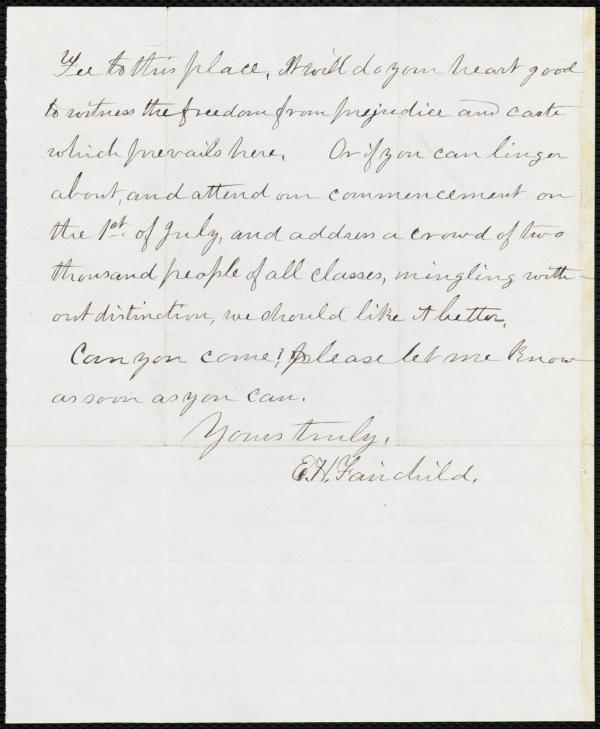 Fee to this place. It will do your heart good
to witness the freedom from prejudice and caste
which prevails here. Or if you can linger
about, and attend our commencement on
the 1st. of July, and address a crowd of two
thousand people of all classes, mingling with-
out distinction, we should like it better.
Can you come? please let me know
as soon as you can.
Yours truly,
E. H. Fairchild.